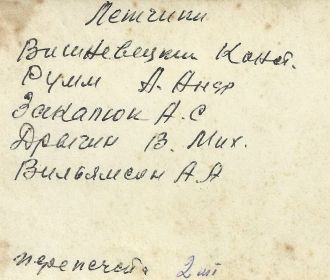 Летчики
Вишневецкий Конст.
Румм А. Андр
Закатюк А.С
Дрыгин В. Мих.
Вильямсон А.А
перепечат. 2 шт